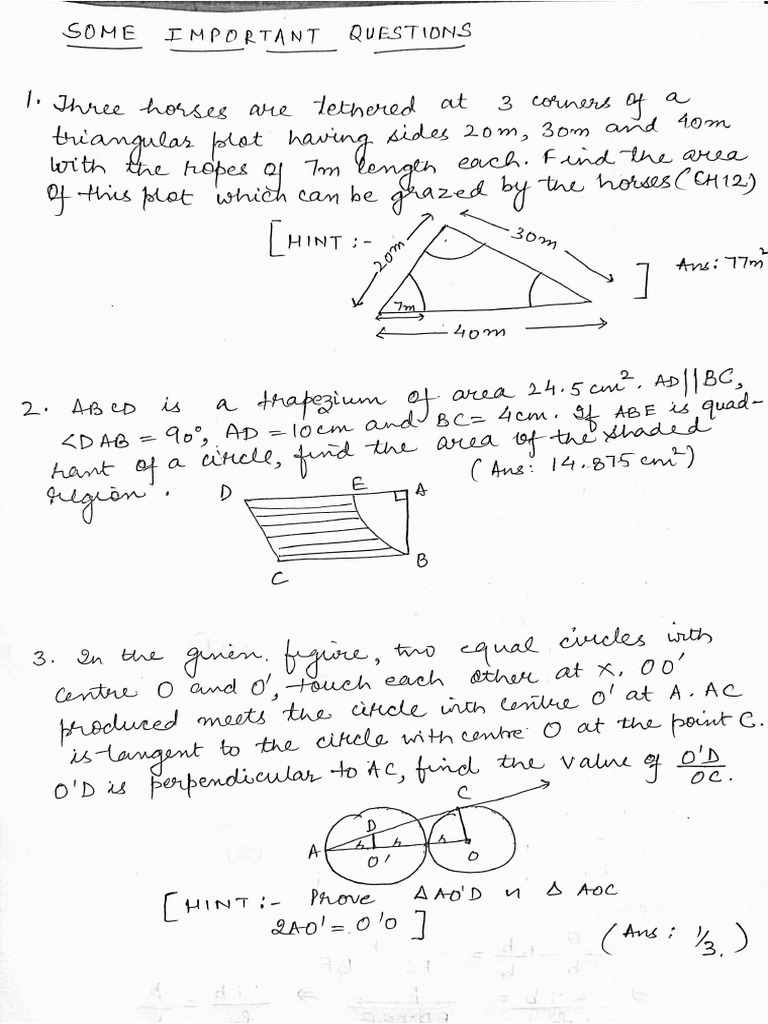 SOME IMPORTANT QUESTIONS
1. Three horses are tethered at 3 corners of a
triangular plot having sides 20m, 30m and 40m
with the ropes of 7m length each. Find the area
Of this plot which can be grazed by the horses (CH12)
[HINT :-
20m
30m
7m
40m
]
Ans: 77m²
2. ABCD is a trapezium of area 24.5 cm². AD||BC,
<DAB = 90°, AD = 10cm and BC = 4cm. If ABE is quad-
rant of a circle, find the area of the shaded
region.
(Ans: 14.875 cm²)
D E A
C B
3. In the given figure, two equal circles with
centre O and O', touch each other at X. OO'
produced meets the circle with centre O' at A. AC
is tangent to the circle with centre O at the point C.
O'D is perpendicular to AC, find the value of O'D/OC.
C
D
A
r r r
O' O
[HINT :- Prove ΔAO'D ~ ΔAOC
2AO' = O'O]
(Ans: 1/3.)